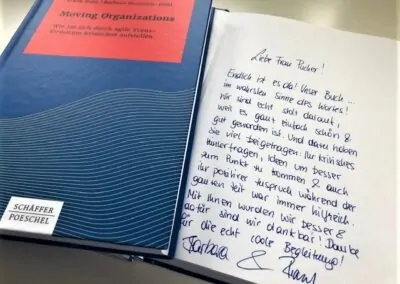 Moving Organizations
Wie Sie sich durch agile Trans-
formation krisensicher aufstellen
SCHÄFFER
POESCHEL
Liebe Frau Pucher!
Endlich ist es da! Unser Buch...
im wahrsten Sinne des Wortes!
Wir sind echt stolz darauf,
weil es ganz einfach schön &
gut geworden ist. Und dazu haben
Sie viel beigetragen. Ihr kritisches
Hinterfragen, Ideen um besser
zum Punkt zu kommen & auch
Ihr positiver Zuspruch während der
ganzen Zeit war immer hilfreich.
Mit Ihnen wurden wir besser &
dafür sind wir dankbar! Danke
für die echt coole Begleitung!
Barbara & Frank